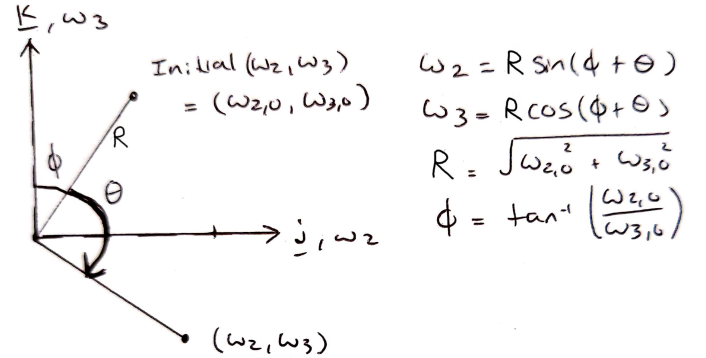 k, ω3
Initial (ω2, ω3)
= (ω2,0, ω3,0)
R
ϕ
θ
j, ω2
(ω2, ω3)
ω2 = R sin(ϕ + θ)
ω3 = R cos(ϕ + θ)
R = √(ω2,0² + ω3,0²)
ϕ = tan⁻¹ (ω2,0/ω3,0)